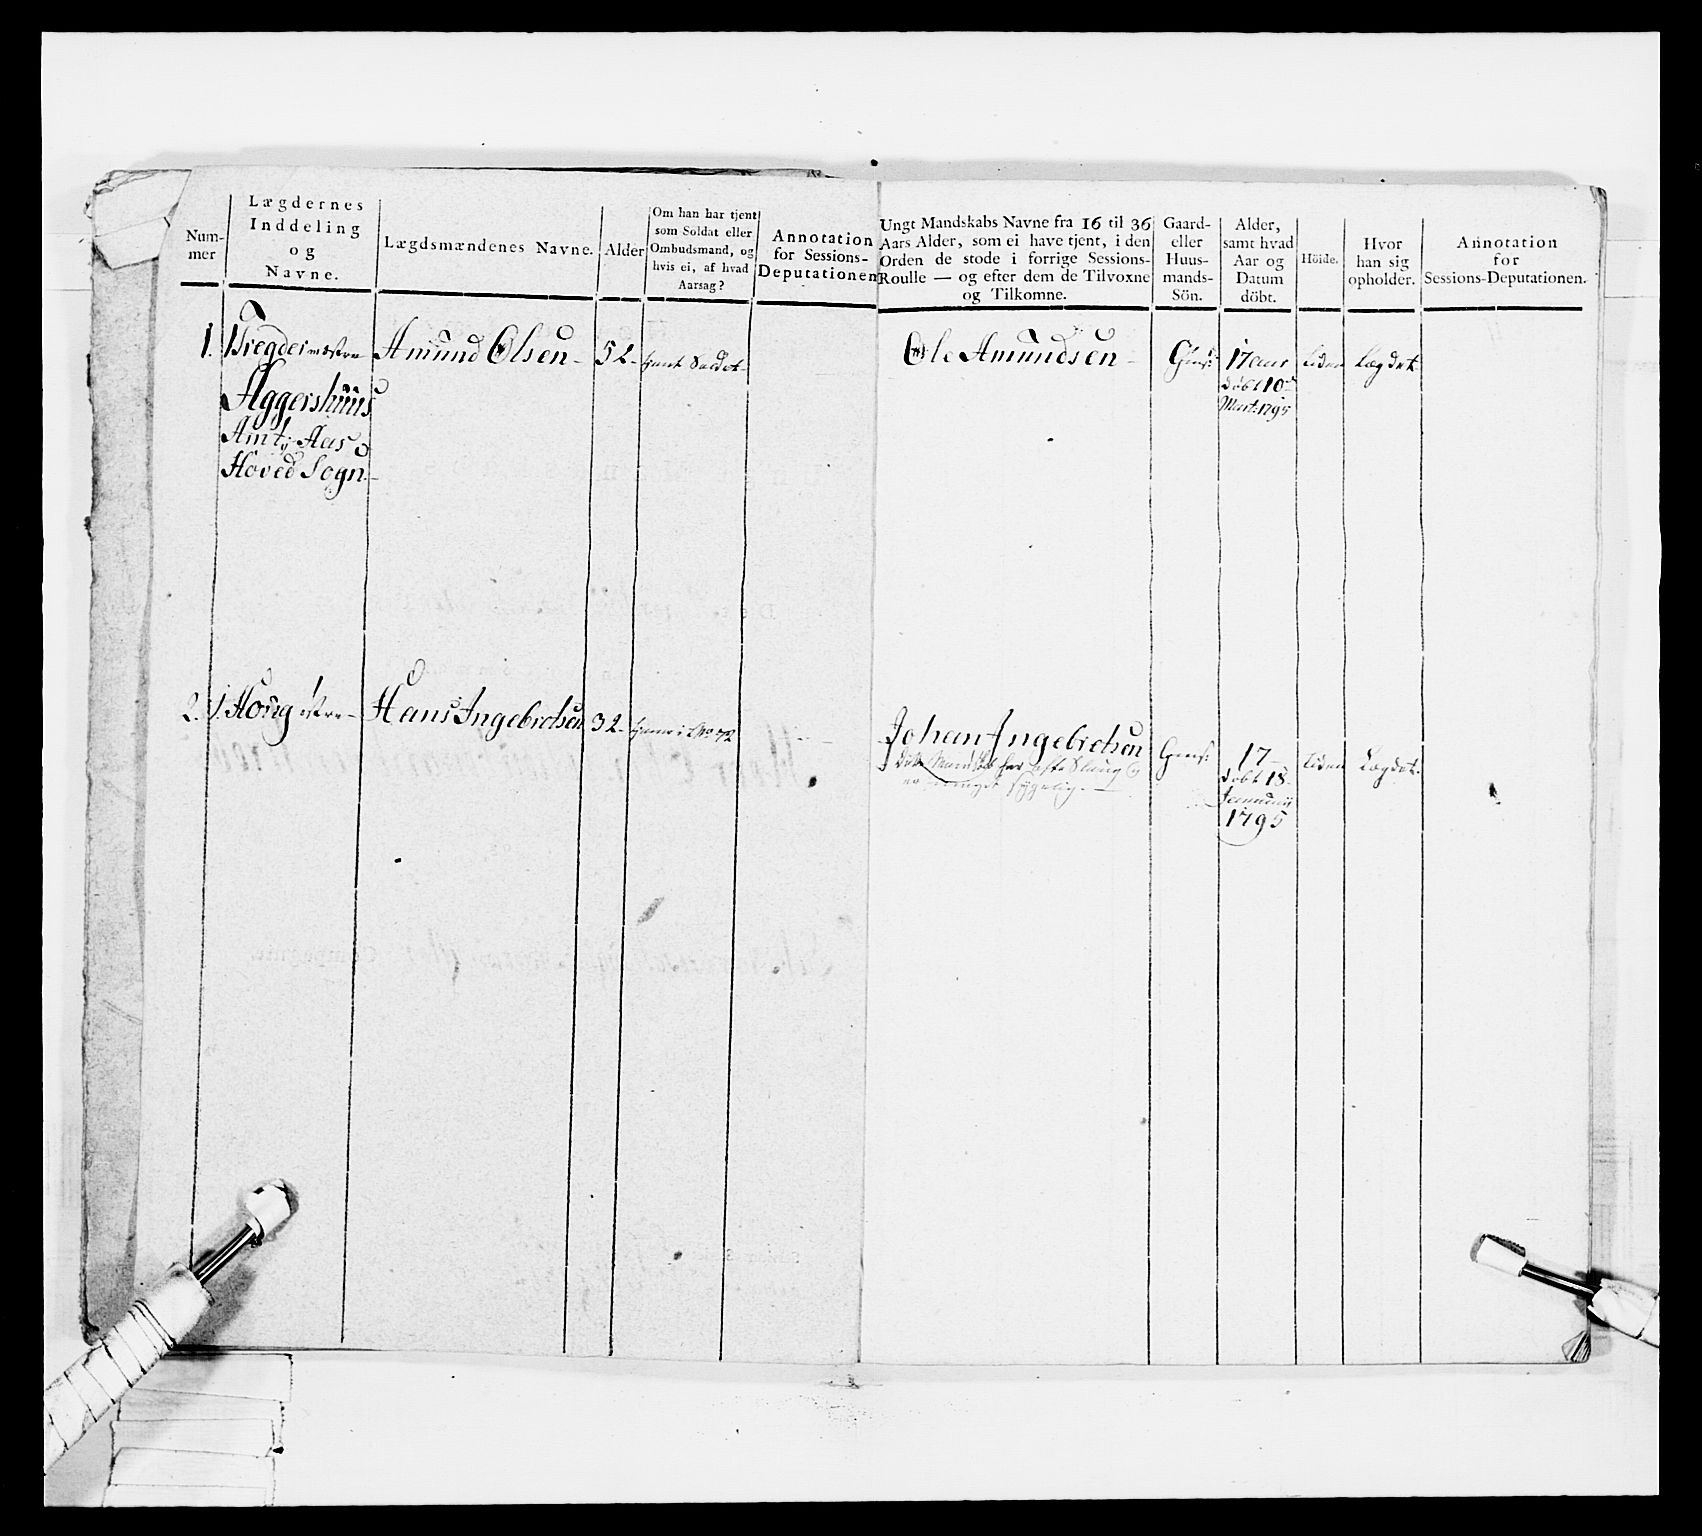 Num-
mer
Lægdernes
Inddeling
og
Navne.
Lægdsmændenes Navne.
Alder
Om han har tjent
som Soldat eller
Ombudsmand, og
hvis ei, af hvad
Aarsag?
Annotation
for Sessions-
Deputationen
Ungt Mandskabs Navne fra 16 til 36
Aars Alder, som ei have tjent, i den
Orden de stode i forrige Sessions-
Roulle — og efter dem de Tilvoxne
og Tilkomne.
Gaard-
eller
Huus-
mands-
Sön.
Alder,
samt hvad
Aar og
Datum
döbt.
Höide.
Hvor
han sig
opholder.
Annotation
for
Sessions-Deputationen.
1.
Aggershuus
Amt, Aas
Hoved Sogn
Amund Olsen
52
tjent Soldat
Ole Amundsen
Gms:
17 aar
döbt 10de
Mart: 1795
Liden
Lægdet
2.
1. Houg østre
Hans Ingebretsen
32
Johan Ingebretsen
er meget sygelig.
Gms:
17
döbt 18
Januarii
1795
Liden
Lægdet